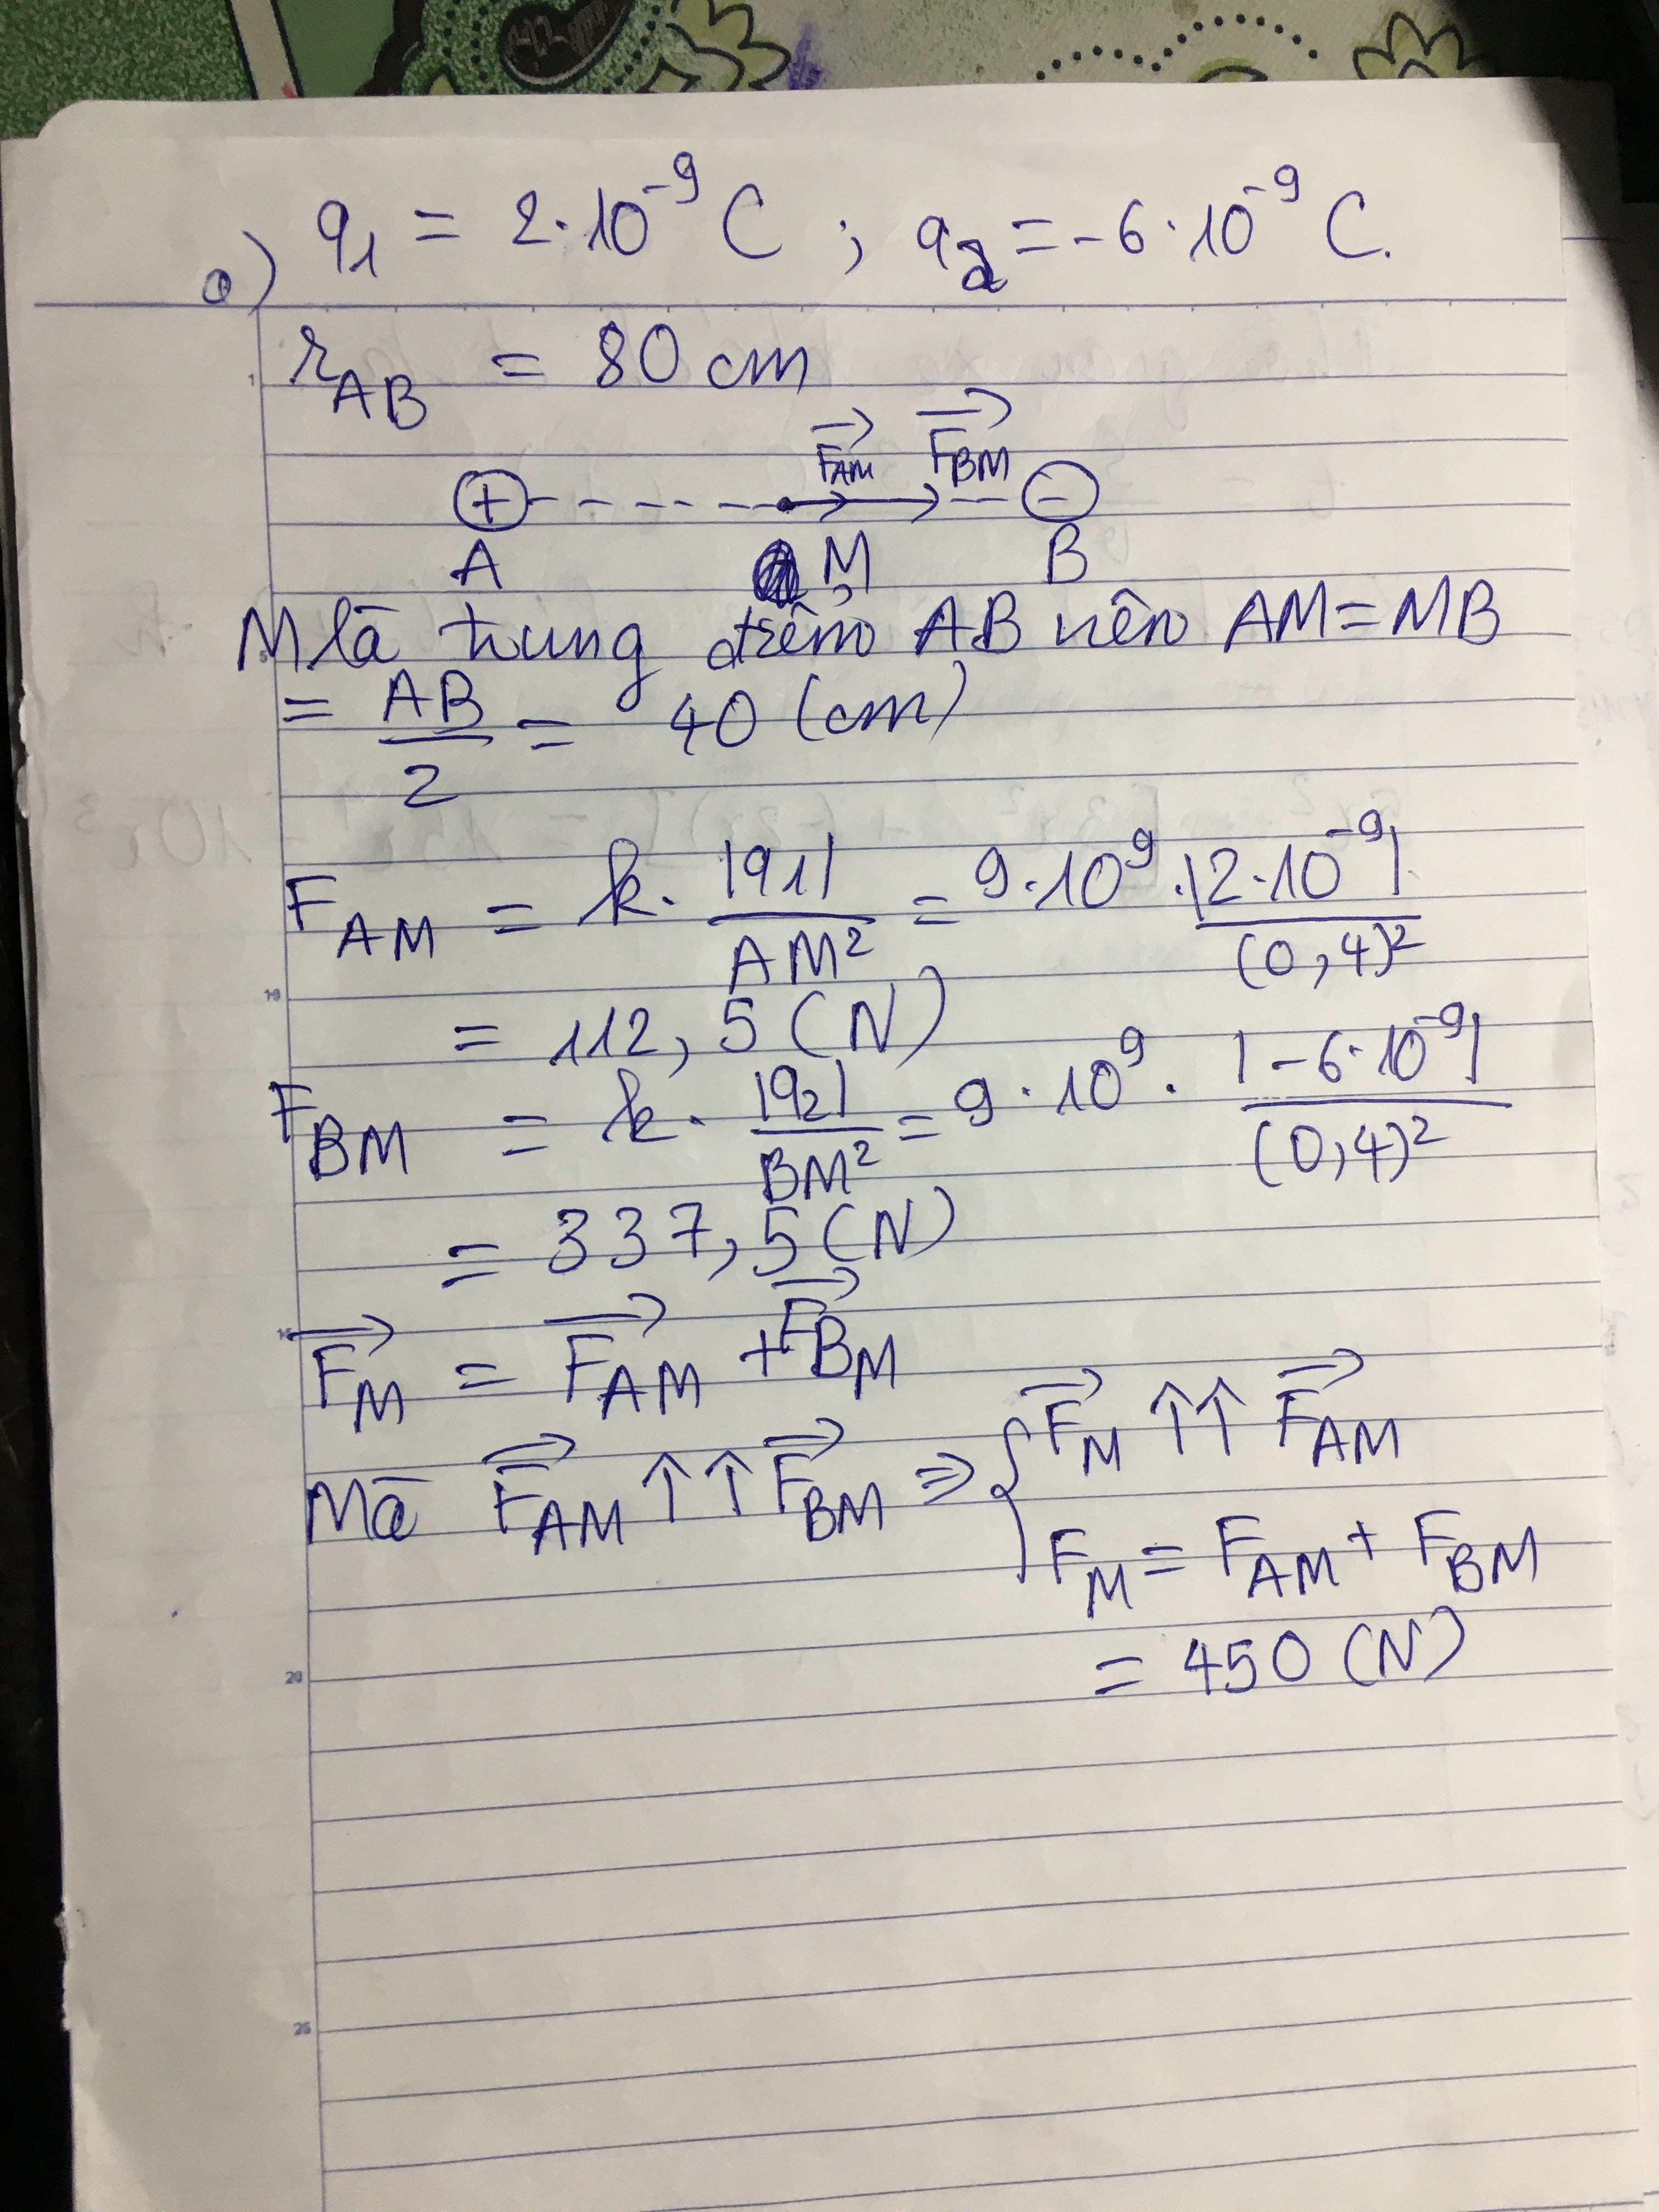 a) q₁ = 2·10⁻⁹ C ; q₂ = -6·10⁻⁹ C.
r_AB = 80 cm
F⃗_AM F⃗_BM
+ -
A M B
M là trung điểm AB nên AM = MB
= AB/2 = 40 (cm)
F_AM = k·|q₁|/AM² = 9·10⁹·|2·10⁻⁹|/(0,4)²
= 112,5 (N)
F_BM = k·|q₂|/BM² = 9·10⁹·|-6·10⁻⁹|/(0,4)²
= 337,5 (N)
F⃗_M = F⃗_AM + F⃗_BM
Mà F⃗_AM ↑↑ F⃗_BM ⇒ { F⃗_M ↑↑ F⃗_AM
F_M = F_AM + F_BM
= 450 (N)